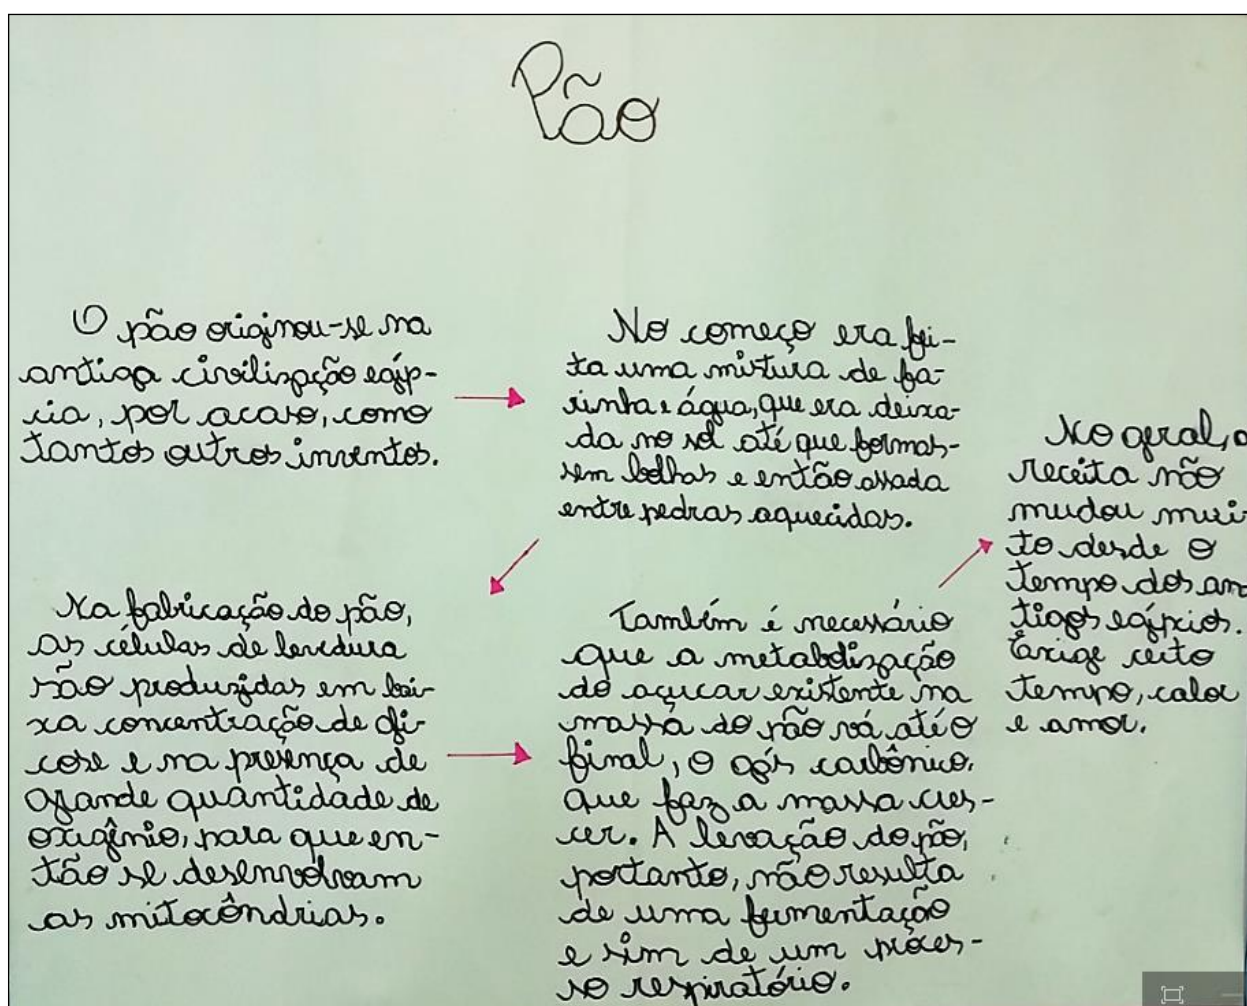 Pão
O pão originou-se na
antiga civilização egíp-
cia, por acaso, como
tantos outros inventos.
No começo era fei-
ta uma mistura de fa-
rinha e água, que era deixa-
da no sol até que formas-
sem bolhas e então assada
entre pedras aquecidas.
Na fabricação do pão,
as células de levedura
são produzidas em bai-
xa concentração de gli-
cose e na presença de
grande quantidade de
oxigênio, para que en-
tão se desenvolvam
as mitocôndrias.
Também é necessário
que a metabolização
do açucar existente na
massa do pão vá até o
final, o gás carbônico.
que faz a massa cres-
cer. A levação do pão,
portanto, não resulta
de uma fermentação
e sim de um proces-
so respiratório.
No geral, a
receita não
mudou mui-
to desde o
tempo dos an
tigos egípcios.
Exige certo
tempo, calor
e amor.